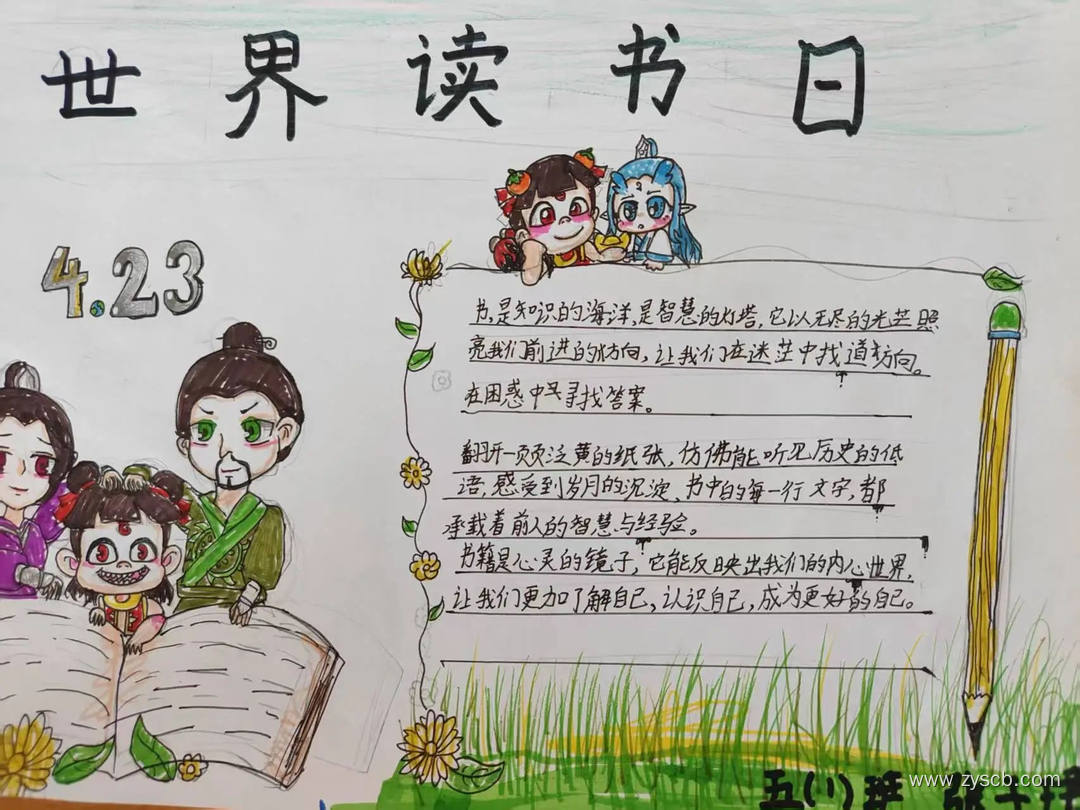 世界读书日
4.23
书,是知识的海洋,是智慧的灯塔,它以无尽的光芒照
亮我们前进的方向,让我们在迷茫中找道方向。
在困惑中寻找答案。
翻开一页页泛黄的纸张,仿佛能听见历史的低
语,感受到岁月的沉淀、书中的每一行文字,都
承载着前人的智慧与经验。
书籍是心灵的镜子,它能反映出我们的内心世界,
让我们更加了解自己,认识自己,成为更好的自己。
五(1)班
www.zyscb.com